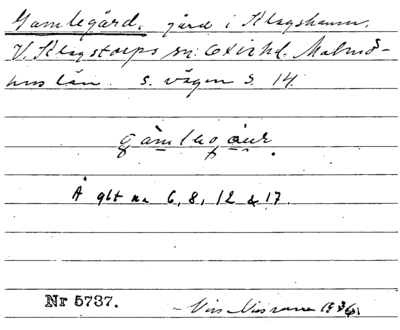 Gamlegård, gård i Klagshamn,
V. Klagstorps sn. Oxie hd. Malmö-
hus län. S. vägen S. 14.
Å glt nr 6, 8, 12 & 17.
Nr 5737.